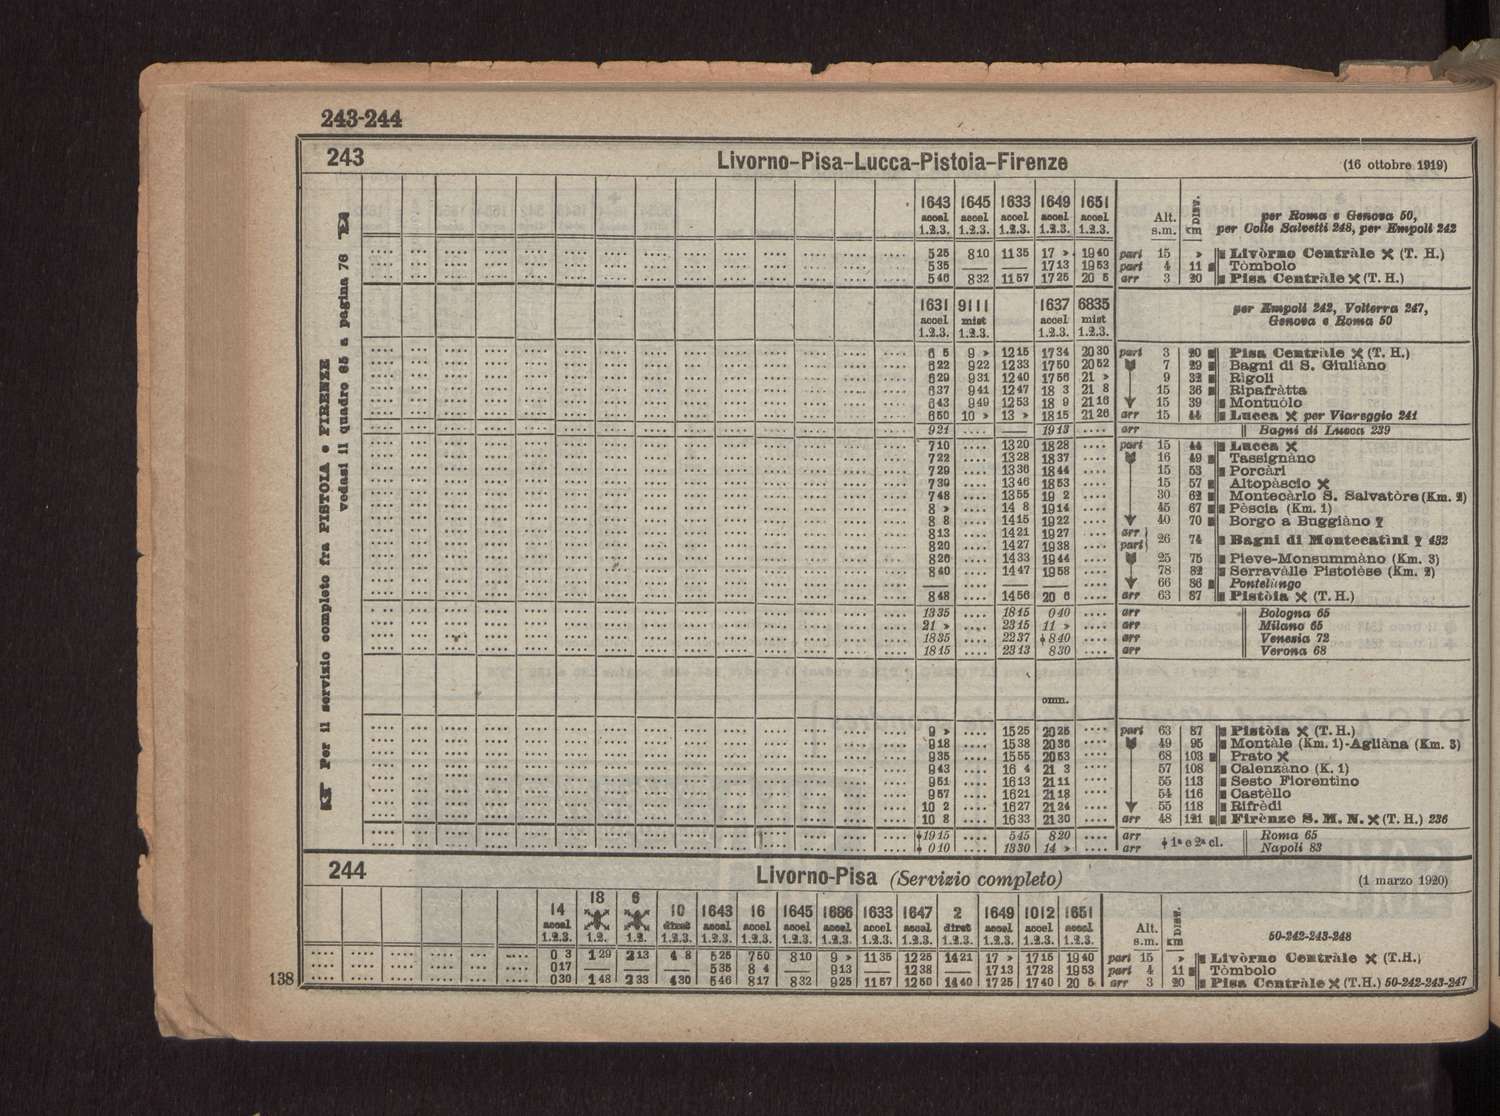 243-244
243 Livorno-Pisa-Lucca-Pistoia-Firenze (16 ottobre 1919)
Per il servizio completo fra PISTOIA e FIRENZE
vedasi il quadro 65 a pagina 76
1643 1645 1633 1649 1651
accel accel accel accel accel Alt. DIST.
1.2.3. 1.2.3. 1.2.3. 1.2.3. 1.2.3. s.m. km
per Roma e Genova 50,
per Colle Salvetti 248, per Empoli 242
5 25 8 10 11 35 17 » 19 40 part 15 » Livòrno Centràle (T. H.)
5 35 — — 17 13 19 53 part 4 11 Tòmbolo
5 46 8 32 11 57 17 25 20 5 arr 3 20 Pisa Centràle (T. H.)
1631 9111 1637 6835
accel mist accel mist
1.2.3. 1.2.3. 1.2.3. 1.2.3.
per Empoli 242, Volterra 247,
Genova e Roma 50
6 5 9 » 12 15 17 34 20 30 part 3 20 Pisa Centràle (T. H.)
6 22 9 22 12 33 17 50 20 52 7 29 Bagni di S. Giuliàno
6 29 9 31 12 40 17 56 21 » 9 32 Rìgoli
6 37 9 41 12 47 18 3 21 8 15 36 Ripafràtta
6 43 9 49 12 53 18 9 21 16 15 39 Montuòlo
6 50 10 » 13 » 18 15 21 26 arr 15 44 Lucca per Viareggio 241
9 21 .... — 19 13 .... arr Bagni di Lucca 239
7 10 .... 13 20 18 28 .... part 15 44 Lucca
7 22 .... 13 28 18 37 .... 16 49 Tassignàno
7 29 .... 13 36 18 44 .... 15 53 Porcàri
7 39 .... 13 46 18 53 .... 15 57 Altopàscio
7 48 .... 13 55 19 2 .... 30 62 Montecàrlo S. Salvatòre (Km. 2)
8 » .... 14 8 19 14 .... 45 67 Pèscia (Km. 1)
8 8 .... 14 15 19 22 .... 40 70 Borgo a Buggiàno
8 13 .... 14 21 19 27 .... arr
8 20 .... 14 27 19 38 .... part 26 74 Bagni di Montecatìni 432
8 26 .... 14 33 19 44 .... 25 75 Pieve-Monsummàno (Km. 3)
8 40 .... 14 47 19 58 .... 78 82 Serravàlle Pistoièse (Km. 2)
— .... — — .... 66 86 Pontelungo
8 48 .... 14 56 20 6 .... arr 63 87 Pistòia (T. H.)
13 35 .... 18 15 0 40 .... arr Bologna 65
21 » .... 23 15 11 » .... arr Milano 65
18 35 .... 22 37 8 40 .... arr Venezia 72
18 15 .... 23 13 8 30 .... arr Verona 68
omn.
9 » .... 15 25 20 25 .... part 63 87 Pistòia (T. H.)
9 18 .... 15 38 20 36 .... 49 95 Montàle (Km. 1)-Agliàna (Km. 3)
9 35 .... 15 55 20 53 .... 68 103 Prato
9 43 .... 16 4 21 3 .... 57 108 Calenzàno (K. 1)
9 51 .... 16 13 21 11 .... 55 113 Sesto Fiorentìno
9 57 .... 16 21 21 18 .... 54 116 Castèllo
10 2 .... 16 27 21 24 .... 55 118 Rifrèdi
10 8 .... 16 33 21 30 .... arr 48 121 Firènze S. M. N. (T. H.) 236
19 15 .... 5 45 8 20 .... arr 1ª e 2ª cl. Roma 65
0 10 .... 13 30 14 » .... arr Napoli 83
244 Livorno-Pisa (Servizio completo) (1 marzo 1920)
14 18 6 10 1643 16 1645 1686 1633 1647 2 1649 1012 1651
accel diret accel accel accel accel accel accel diret accel accel accel Alt. DIST.
1.2.3. 1.2. 1.2. 1.2.3. 1.2.3. 1.2.3. 1.2.3. 1.2.3. 1.2.3. 1.2.3. 1.2.3. 1.2.3. 1.2.3. 1.2.3. s.m. km 50-242-243-248
0 3 1 29 2 13 4 8 5 25 7 50 8 10 9 » 11 35 12 25 14 21 17 » 17 15 19 40 part 15 » Livòrno Centràle (T.H.)
0 17 — — — 5 35 8 4 — 9 13 — 12 38 — 17 13 17 28 19 53 part 4 11 Tòmbolo
0 30 1 48 2 33 4 30 5 46 8 17 8 32 9 25 11 57 12 50 14 40 17 25 17 40 20 5 arr 3 20 Pisa Centràle (T.H.) 50-242-243-247
138